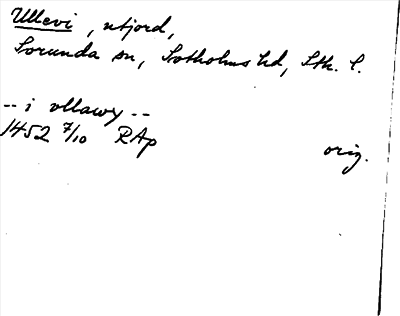 Ullevi, utjord,
Sorunda sn, Sotholms hd, Sth. l.
-- i vllawy --
1452 7/10 RAp orig.